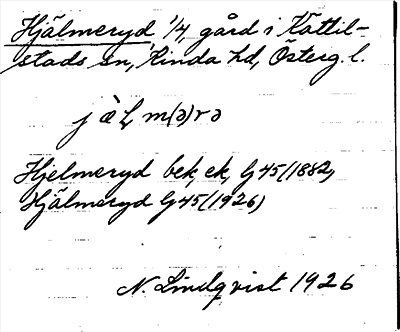 Hjälmeryd, 1/4, gård i Kättil-
stads sn, Kinda hd, Österg. l.
j ä̀ L m(ə)rə
Hjelmeryd bek, ek, G 45 (1882,
Hjälmeryd G 45 (1926)
N. Lindqvist 1926